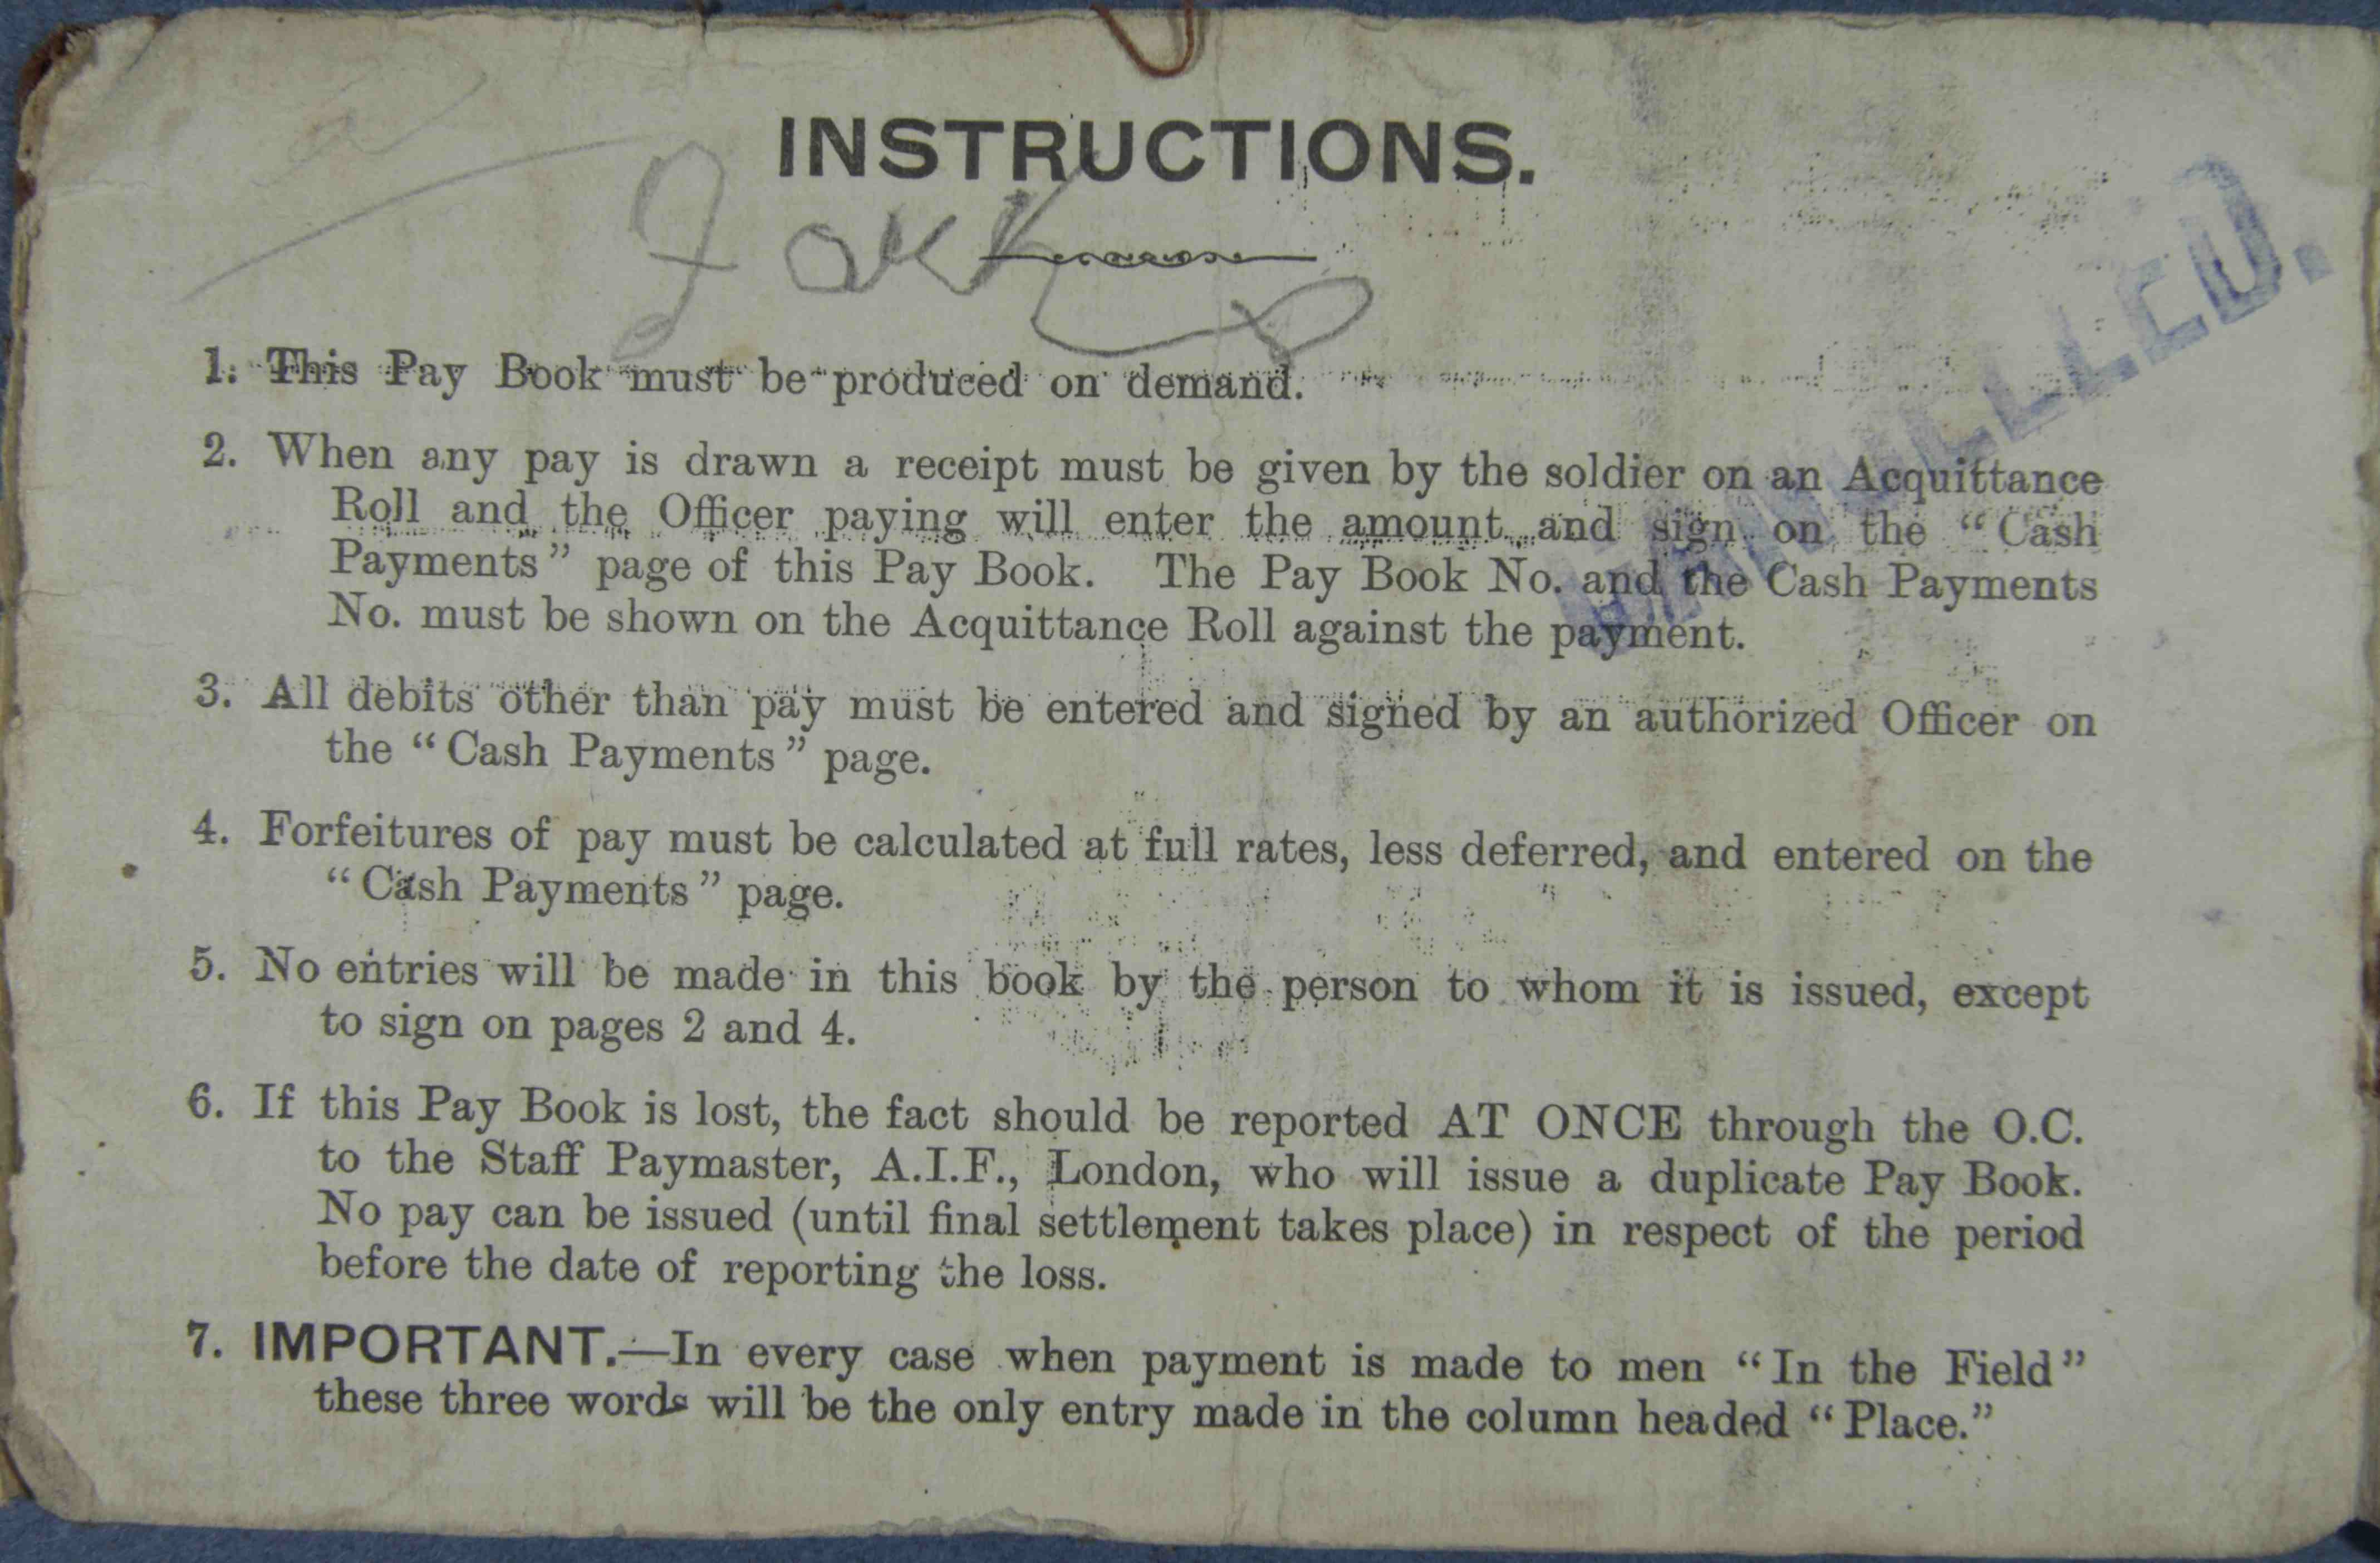 INSTRUCTIONS.
1. This Pay Book must be produced on demand.
2. When any pay is drawn a receipt must be given by the soldier on an Acquittance
Roll and the Officer paying will enter the amount and sign on the “Cash
Payments” page of this Pay Book. The Pay Book No. and the Cash Payments
No. must be shown on the Acquittance Roll against the payment.
3. All debits other than pay must be entered and signed by an authorized Officer on
the “Cash Payments” page.
4. Forfeitures of pay must be calculated at full rates, less deferred, and entered on the
“Cash Payments” page.
5. No entries will be made in this book by the person to whom it is issued, except
to sign on pages 2 and 4.
6. If this Pay Book is lost, the fact should be reported AT ONCE through the O.C.
to the Staff Paymaster, A.I.F., London, who will issue a duplicate Pay Book.
No pay can be issued (until final settlement takes place) in respect of the period
before the date of reporting the loss.
7. IMPORTANT.—In every case when payment is made to men “In the Field”
these three words will be the only entry made in the column headed “Place.”